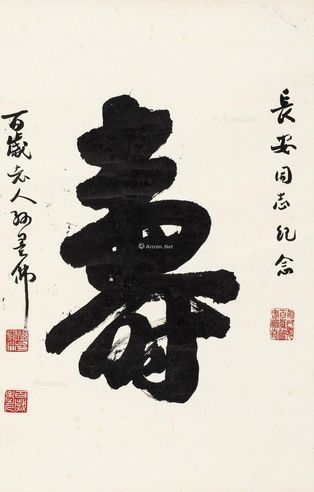 長安同志纪念
壽
百歲老人孙墨佛
Artron.Net